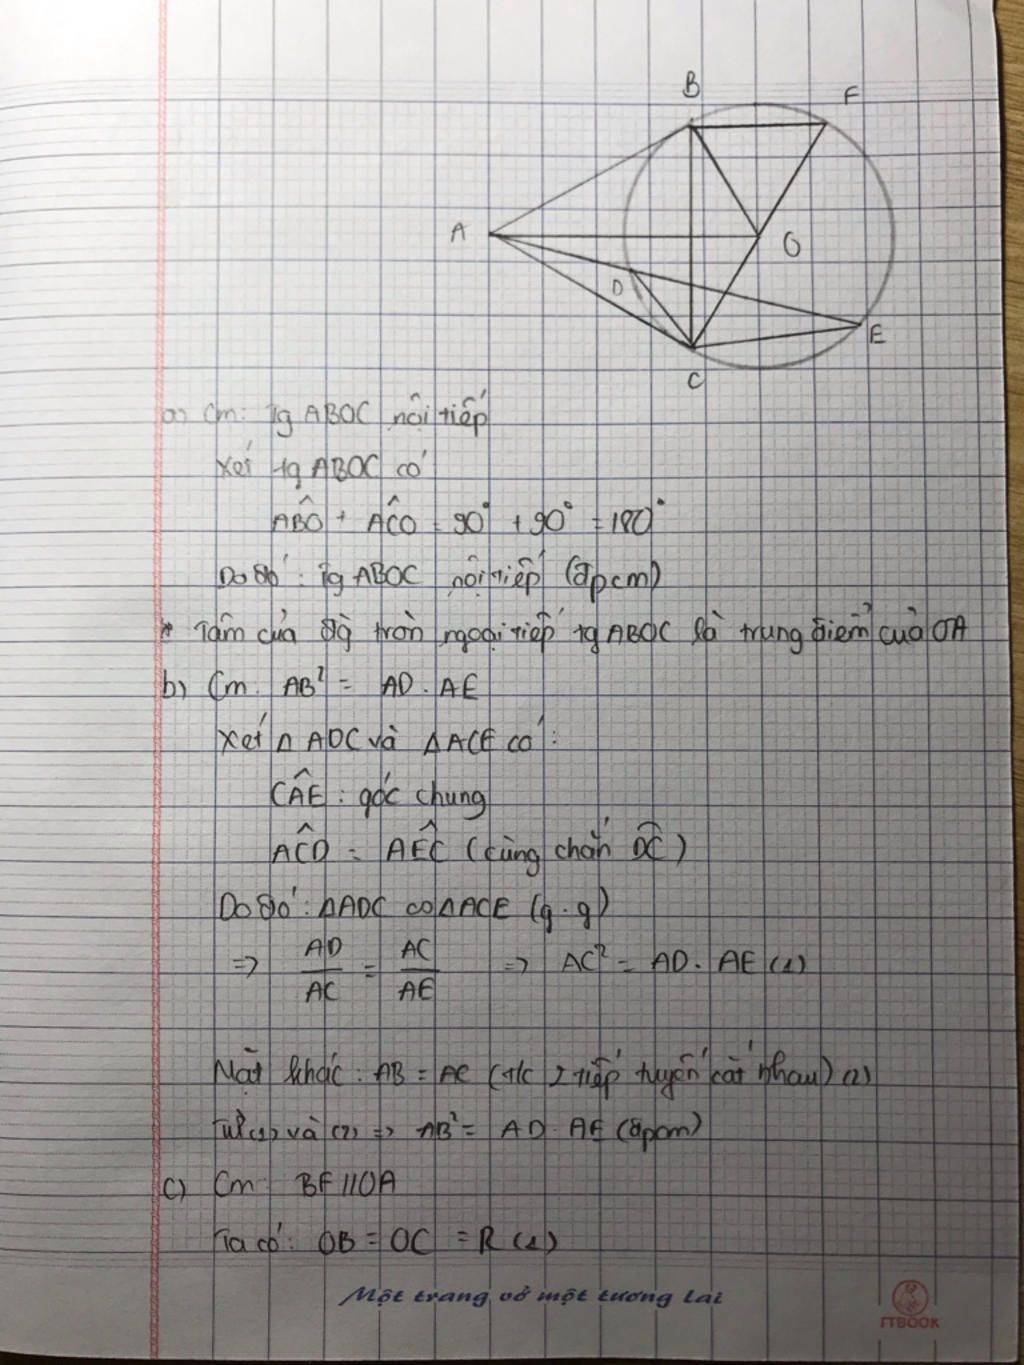 B
F
A
O
D
E
C
a) Cm: Tg ABOC nội tiếp
Xét tg ABOC có
AB̂O + AĈO = 90° + 90° = 180°
Do đó: Tg ABOC nội tiếp (đpcm)
* Tâm của đg tròn ngoại tiếp tg ABOC là trung điểm của OA
b) Cm: AB² = AD . AE
Xét Δ ADC và Δ ACE có:
CÂE : góc chung
AĈD = AÊC (cùng chắn DC)
Do đó: ΔADC ∽ ΔACE (g.g)
=> AD/AC = AC/AE => AC² = AD . AE (1)
Mặt khác: AB = AC (t/c 2 tiếp tuyến cắt nhau) (2)
Từ (1) và (2) => AB² = AD . AE (đpcm)
c) Cm: BF // OA
Ta có: OB = OC = R (1)
Một trang vở một tương lai
TTBOOK